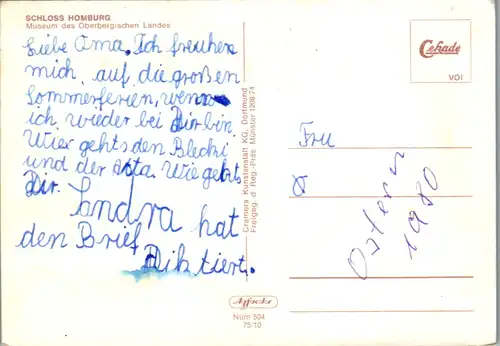 SCHLOSS HOMBURG
Museum des Oberbergischen Landes
Liebe Oma. Ich freuhen
mich auf die großen
Sommerferien, wenn
ich wieder bei Dir bin.
Wier gehts den Blecki
und der Asta. Wie gehts
Dir. Sandra hat
den Brief
Diktiert.
Cramers Kunstanstalt KG, Dortmund
Freigeg. d. Reg.-Präs. Münster 1208/74
Cekade
VOI
Frau
Ostern
1980
Num 504
75/10